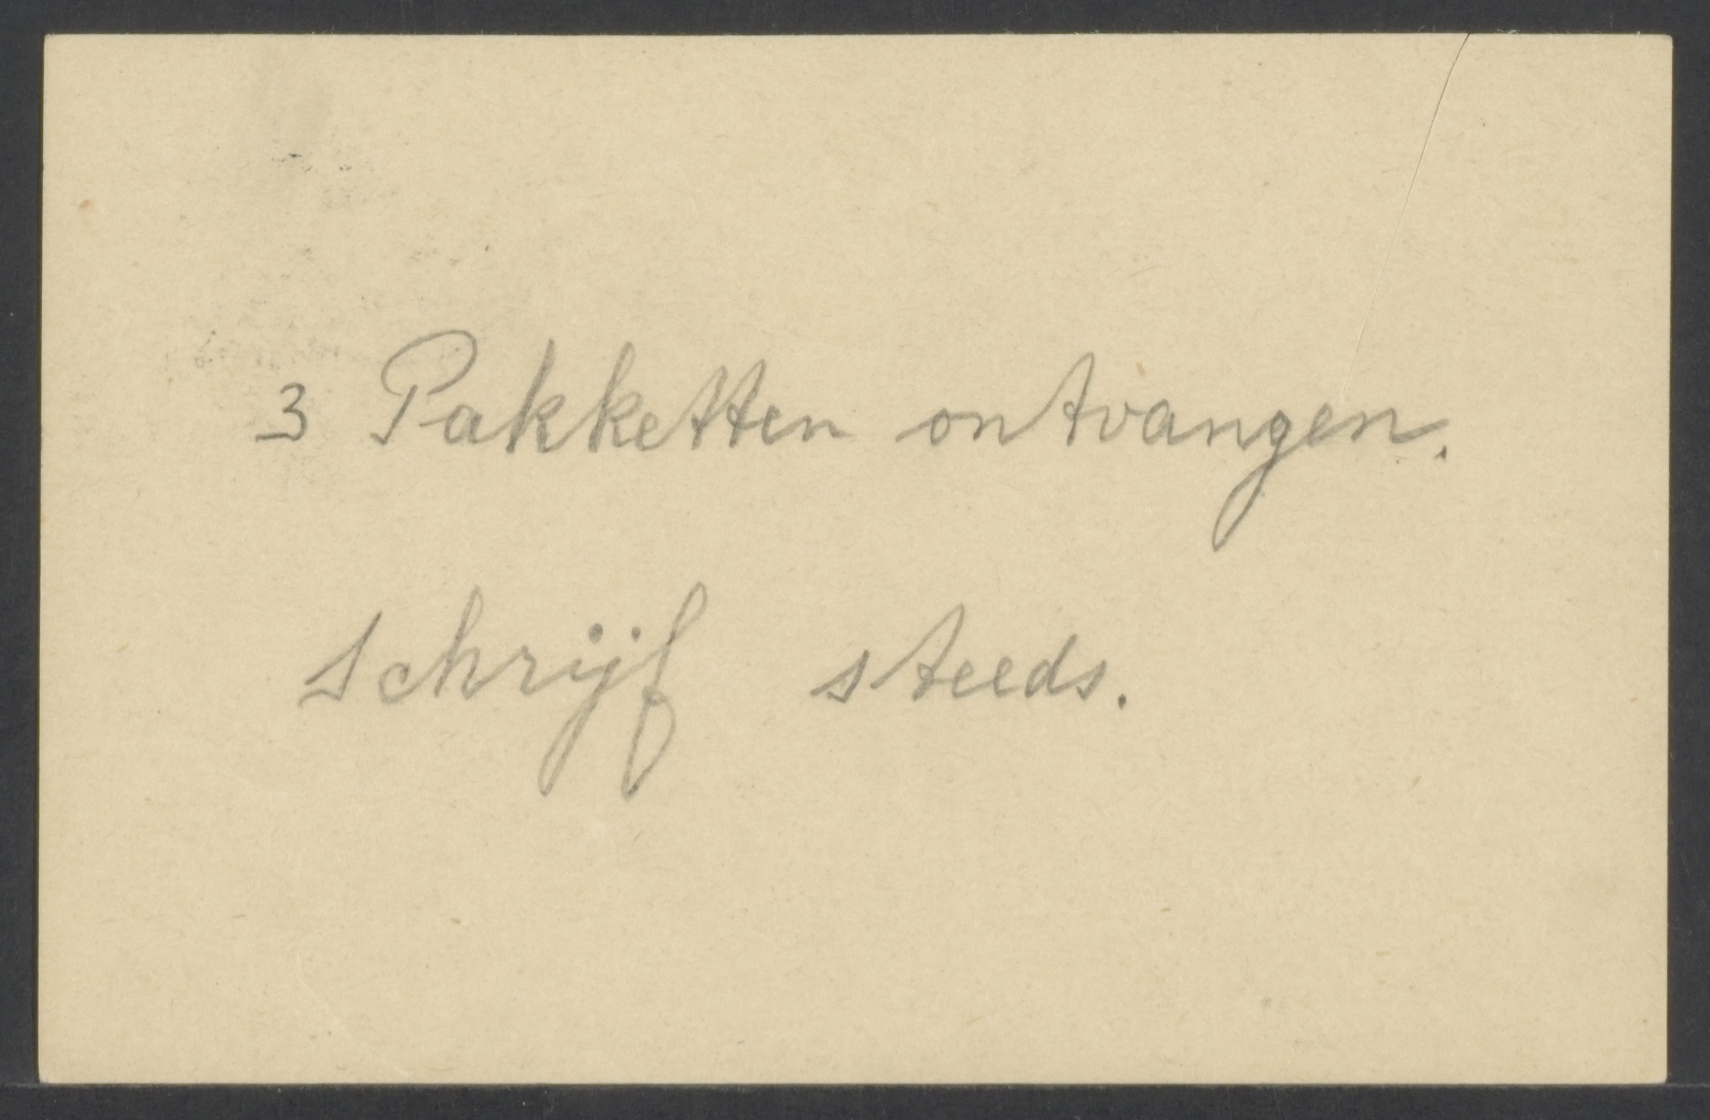 3 Pakketten ontvangen.
schrijf steeds.